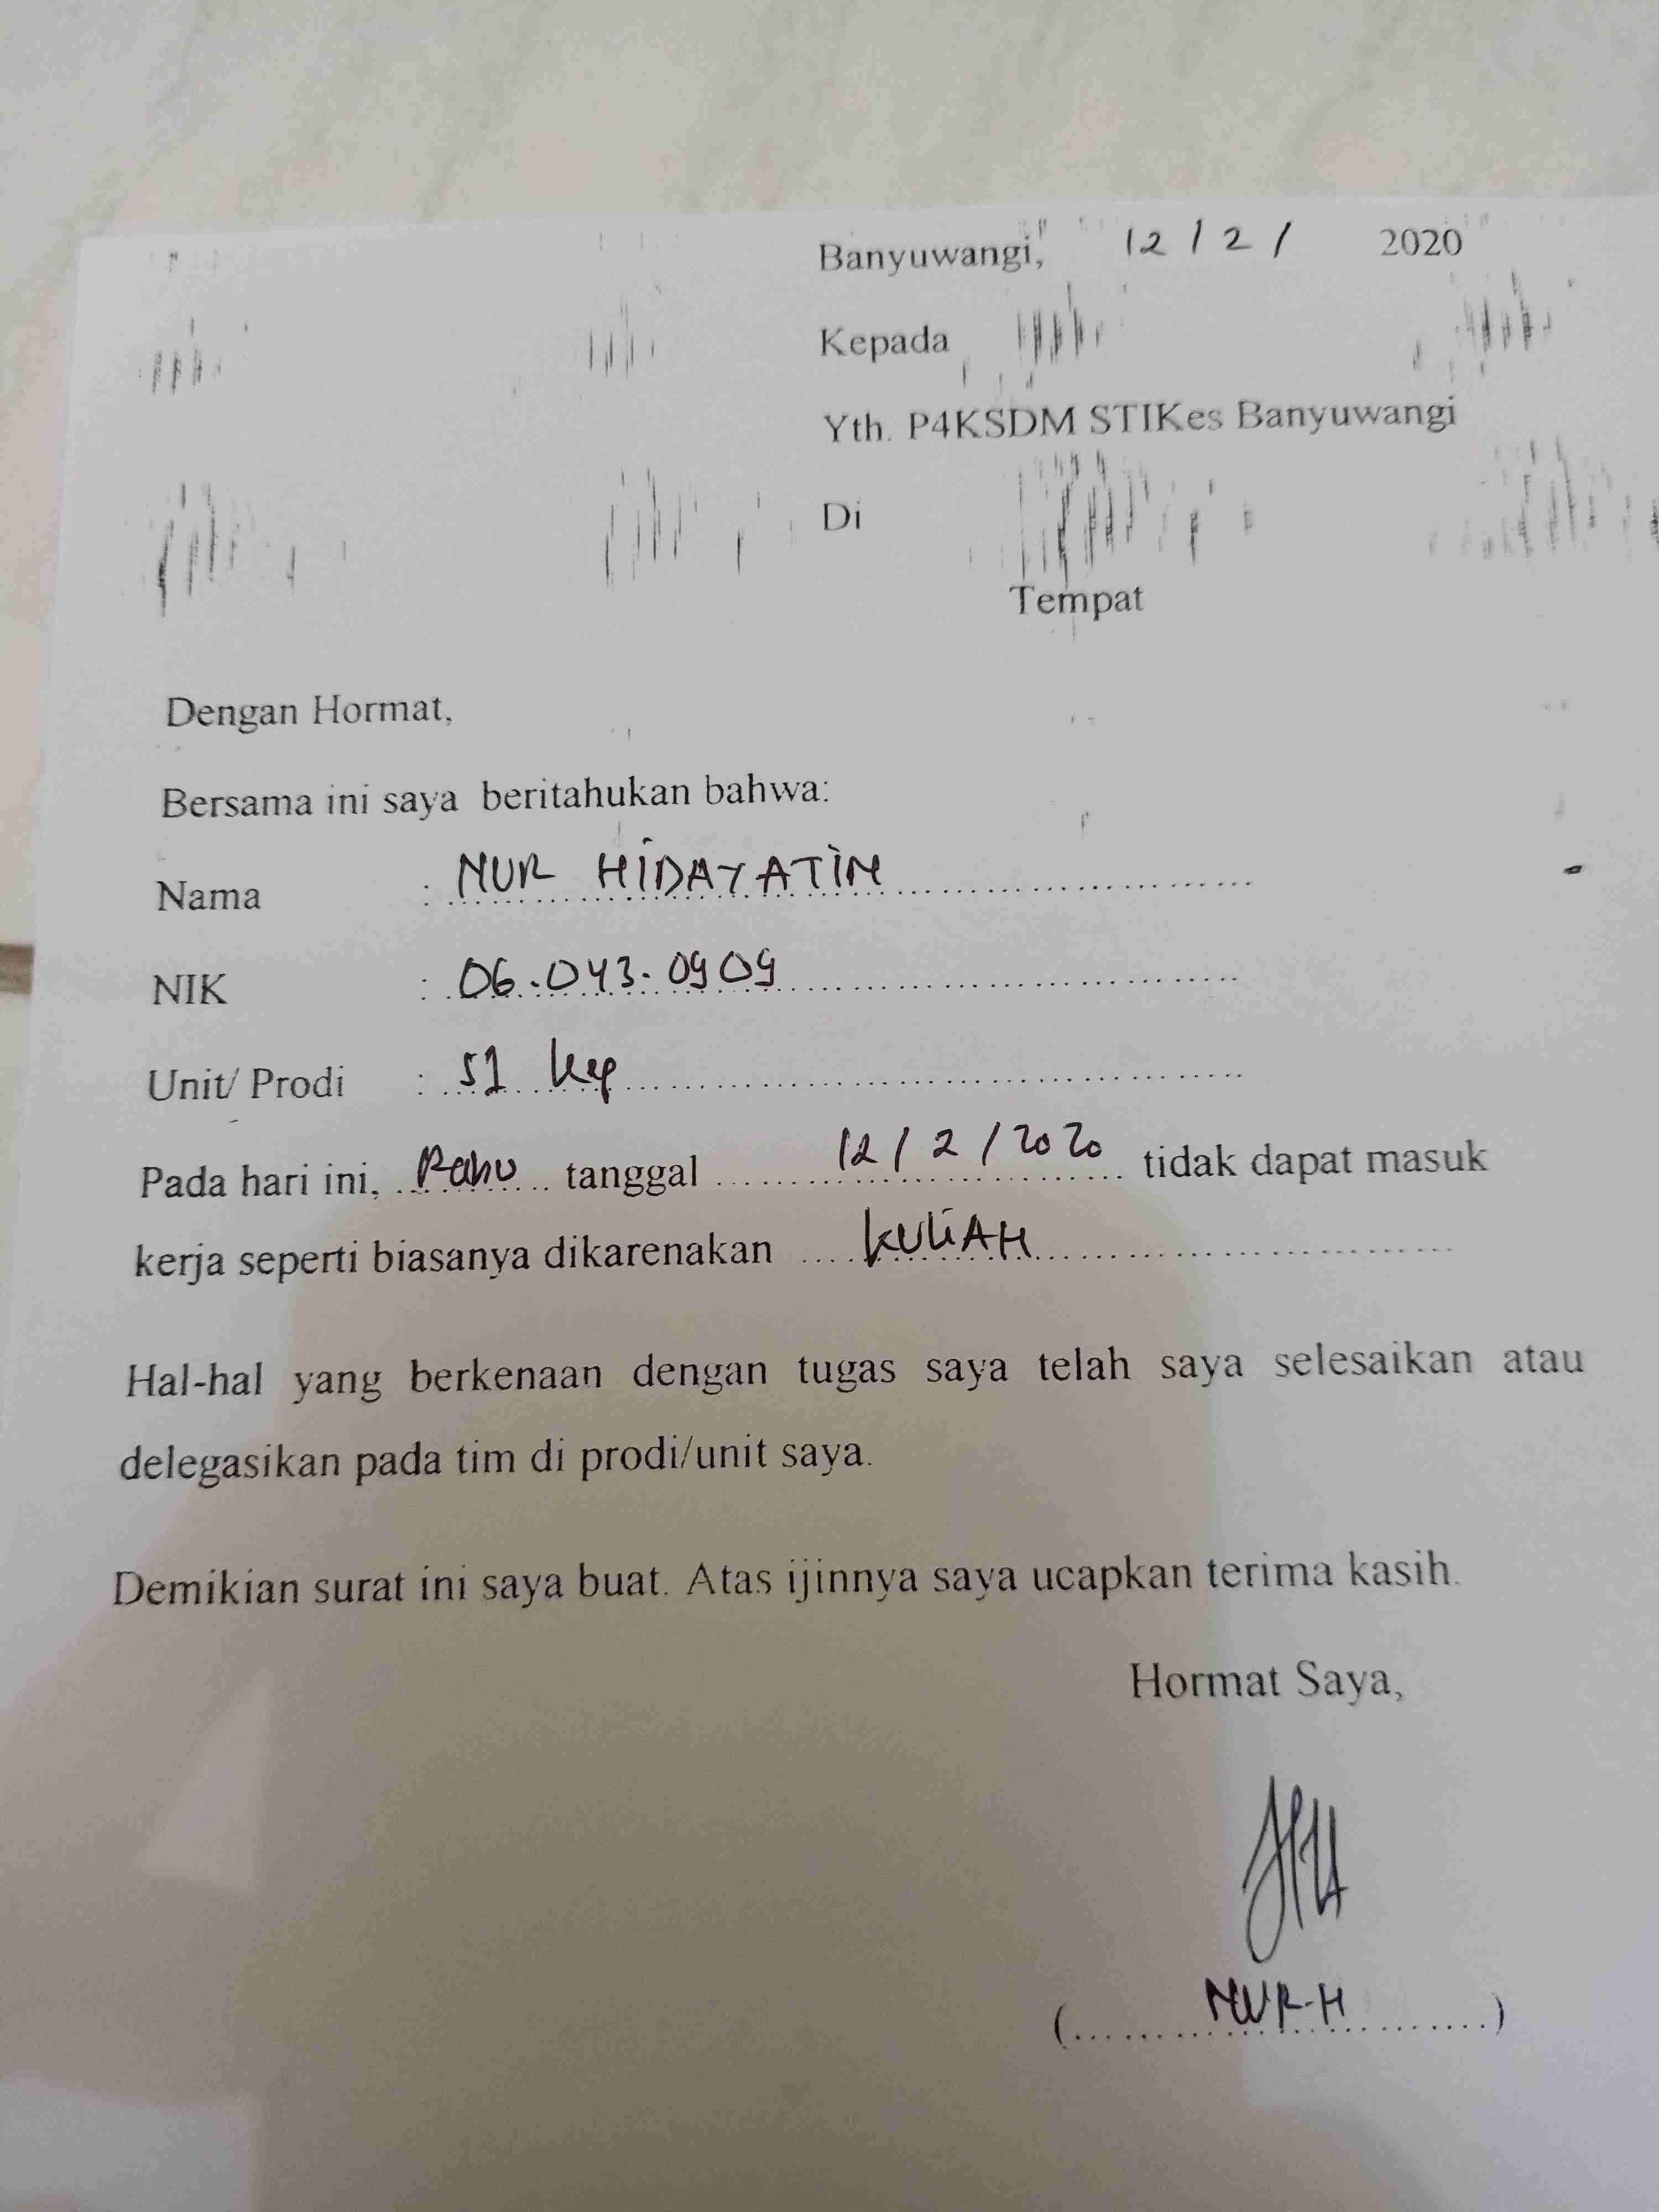 Banyuwangi, 12 / 2 / 2020
Kepada
Yth. P4KSDM STIKes Banyuwangi
Di
Tempat
Dengan Hormat,
Bersama ini saya beritahukan bahwa:
Nama : NUR HIDAYATIN
NIK : 06.043.0909
Unit/ Prodi : S1 Kep
Pada hari ini, Rabu tanggal 12 / 2 / 2020 tidak dapat masuk
kerja seperti biasanya dikarenakan KULIAH
Hal-hal yang berkenaan dengan tugas saya telah saya selesaikan atau
delegasikan pada tim di prodi/unit saya.
Demikian surat ini saya buat. Atas ijinnya saya ucapkan terima kasih.
Hormat Saya,
(NUR-H)